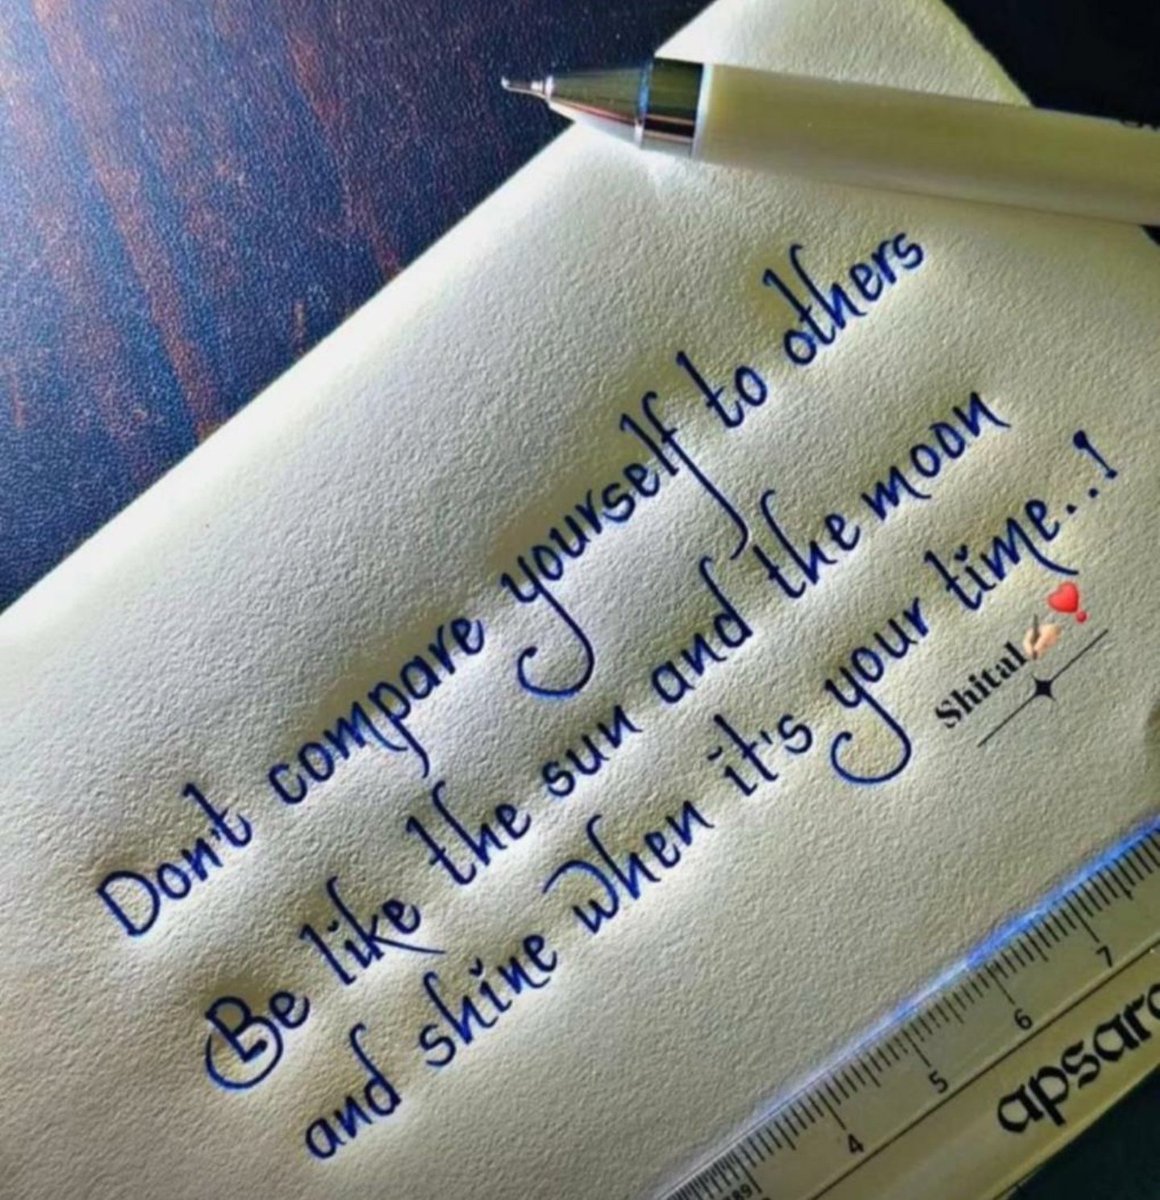 Don't compare yourself to others
Be like the sun and the moon
and shine when it's your time...!
Shital✍🏻❣️
4 5 6 7
apsara